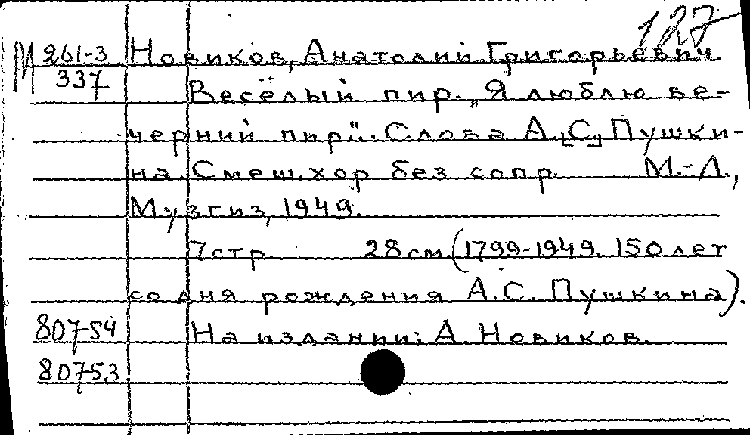 127
М 261-3 Новиков, Анатолий Григорьевич
337 Весёлый пир. „Я люблю ве-
черний пир". Слова А.[С.] Пушки-
на. Смеш. хор без сопр. М.-Л.,
Музгиз, 1949.
7 стр. 28 см. (1799-1949. 150 лет
со дня рождения А.С. Пушкина).
80754 На издании: А. Новиков.
80753